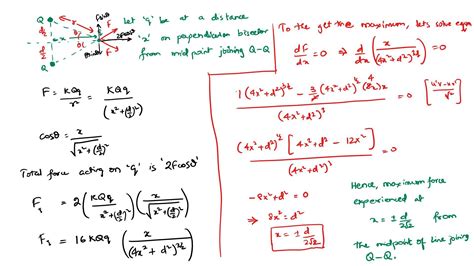 Q
d/2
d/2
Q
F
θ
θ
q
x
Fsinθ
2Fcosθ
Fsinθ
F
let 'q' be at a distance
'x' on perpendicular bisector
from midpoint joining Q-Q
F = KQq/r² = KQq/(x²+(d/2)²)
cosθ = x/√(x²+(d/2)²)
Total force acting on 'q' is '2Fcosθ'
F₃ = 2(KQq/(x²+(d/2)²))(x/√(x²+(d/2)²))
F₃ = 16KQq (x/(4x²+d²)^(3/2))
To the get the maximum, lets solve
dF/dx = 0 ⇒ d/dx (x/(4x²+d²)^(3/2)) = 0
(1(4x²+d²)^(3/2) - 3/2(4x²+d²)^(1/2)(8x)x)/(4x²+d²)³ = 0
((4x²+d²)^(1/2)[4x²+d² - 12x²])/(4x²+d²)³ = 0
-8x²+d² = 0
⇒ 8x² = d²
x = ± d/2√2
Hence, maximum force
experienced at
x = ± d/2√2 from
the midpoint of line joining
Q-Q.